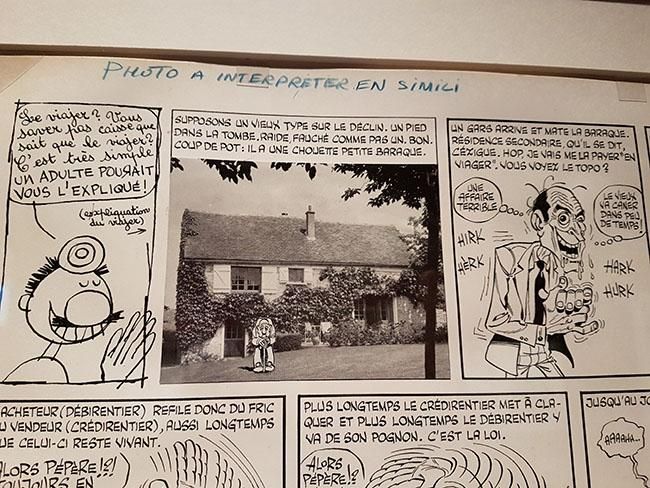 PHOTO A INTERPRÉTER EN SIMILI
Le viajer? Vous
saver pas caisse que
sait que le viajer?
C'est très simple
UN ADULTE POURAIT
VOUS L'EXPLIQUÉ!
(expliquation
du viajer)
SUPPOSONS UN VIEUX TYPE SUR LE DÉCLIN. UN PIED
DANS LA TOMBE. RAIDE, FAUCHÉ COMME PAS UN. BON.
COUP DE POT: IL A UNE CHOUETTE PETITE BARAQUE.
UN GARS ARRIVE ET MATE LA BARAQUE.
RÉSIDENCE SECONDAIRE, QU'IL SE DIT,
CÉXIGUE. HOP, JE VAIS ME LA PAYER "EN
VIAGER". VOUS VOYEZ LE TOPO?
UNE
AFFAIRE
TERRIBLE
LE VIEUX
VA CANER
DANS PEU
DE TEMPS!
HIRK
HERK
HARK
HURK
ACHETEUR (DÉBIRENTIER) REFILE DONC DU FRIC
U VENDEUR (CRÉDIRENTIER), AUSSI LONGTEMPS
QUE CELUI-CI RESTE VIVANT.
ALORS PÉPÈRE!?!
TOUJOURS EN
PLUS LONGTEMPS LE CRÉDIRENTIER MET À CLA-
QUER ET PLUS LONGTEMPS LE DÉBIRENTIER Y
VA DE SON POGNON. C'EST LA LOI.
ALORS
PÉPÈRE!?
JUSQU'AU JO
AAAAHA...